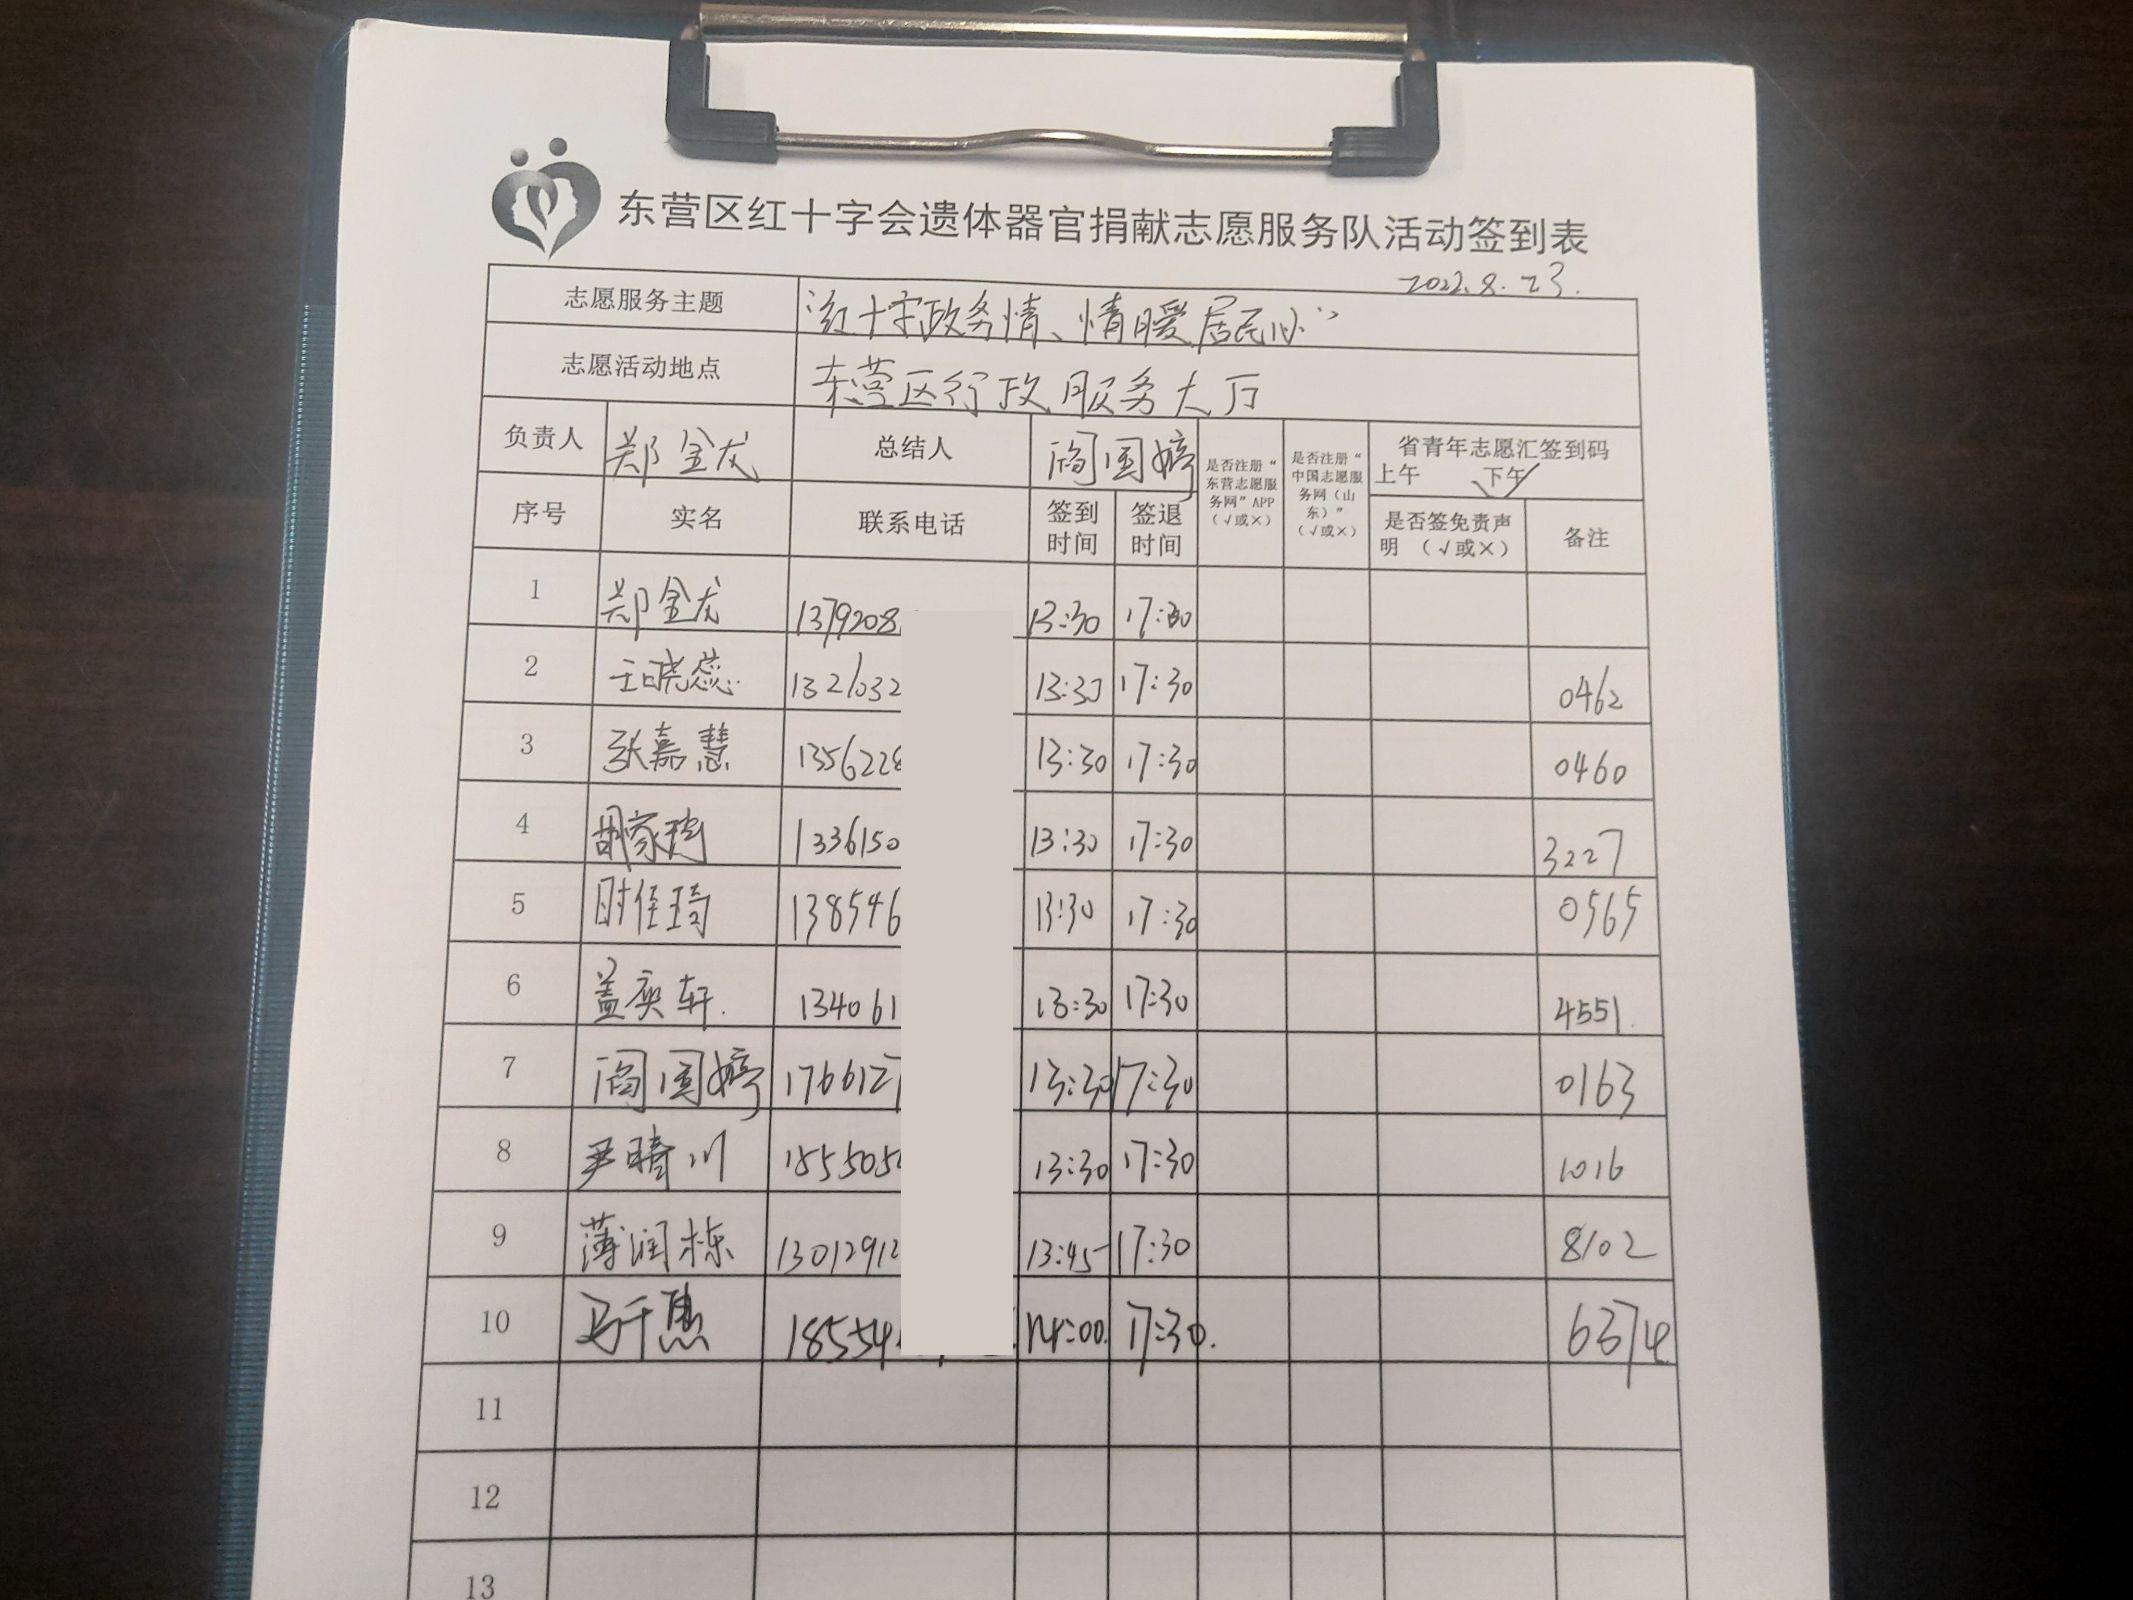 东营区红十字会遗体器官捐献志愿服务队活动签到表
2022.8.23.
志愿服务主题 “红十字政务情、情暖居民心”
志愿活动地点 东营区行政服务大厅
负责人 郑金龙 总结人 阎国婷 是否注册“东营志愿服务网”APP（√或×） 是否注册“中国志愿服务网（山东）”（√或×） 省青年志愿汇签到码 上午 下午√
序号 实名 联系电话 签到时间 签退时间 是否签免责声明（√或×） 备注
1 郑金龙 1379208 13:30 17:30
2 王晓蕊 1321032 13:30 17:30 0462
3 张嘉慧 1356228 13:30 17:30 0460
4 胡家 1336150 13:30 17:30 3227
5 时佳琦 138546 13:30 17:30 0565
6 盖奕轩. 134061 13:30 17:30 4551.
7 阎国婷 1766127 13:30 17:30 0163
8 尹晴川 185505 13:30 17:30 1016
9 薄润栋 13012912 13:45 17:30 8102
10 马千惠 18554 14:00. 17:30. 6374
11
12
13